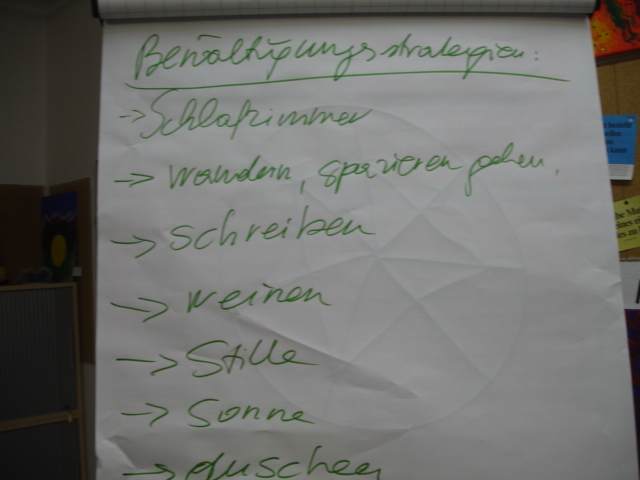 Bewältigungsstrategien:
-> Schlafzimmer
-> wandern, spazieren gehen,
-> schreiben
-> weinen
-> Stille
-> Sonne
-> duschen